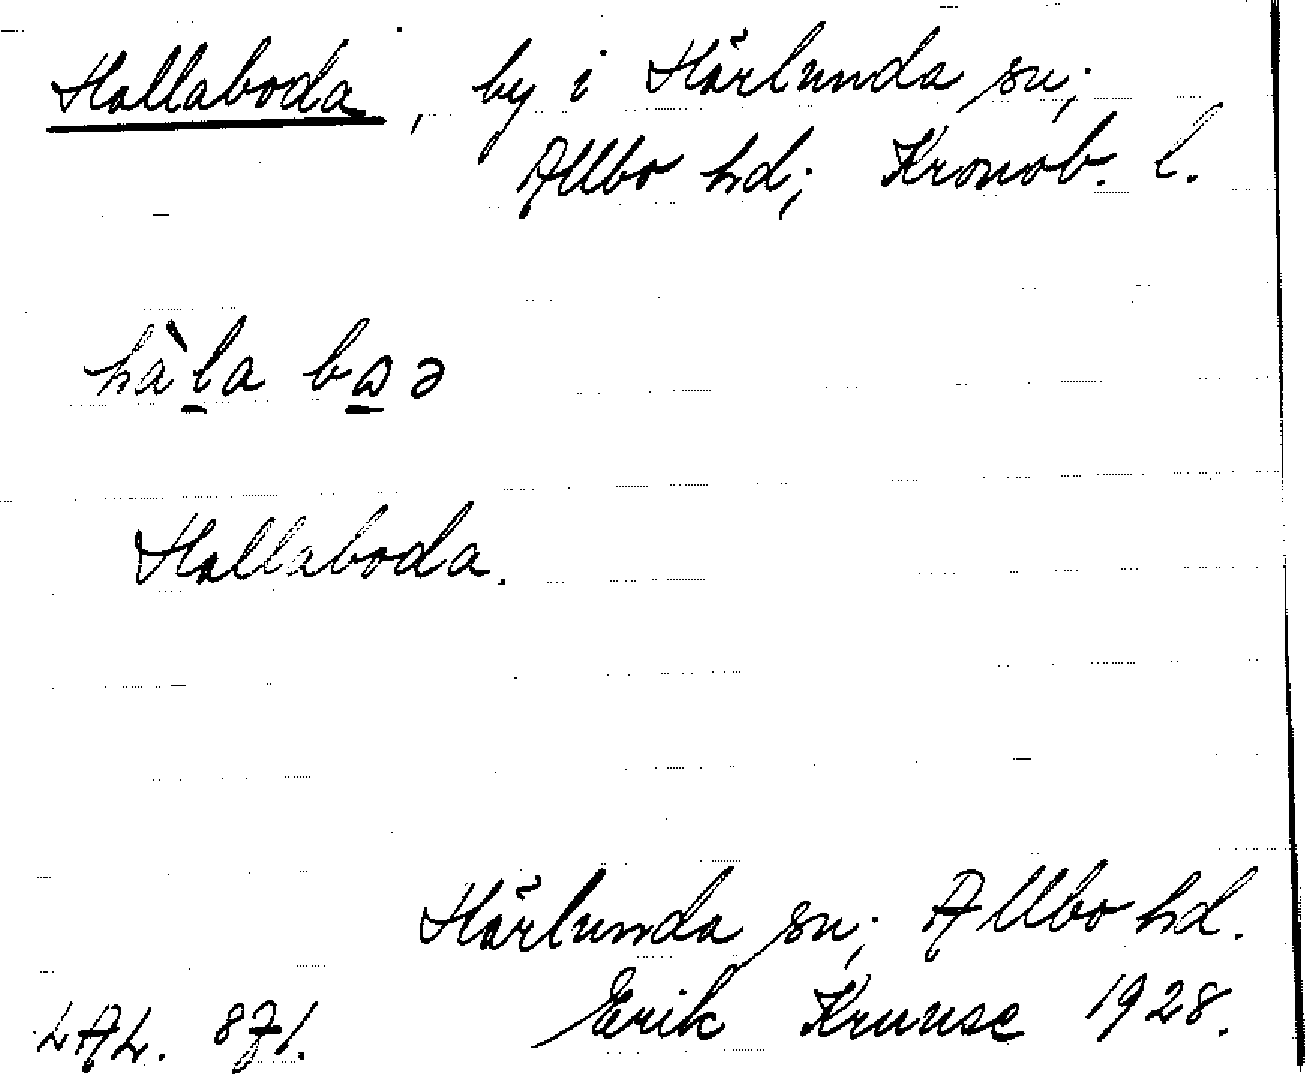 Hallaboda, by i Härlunda sn;
Allbo hd; Kronob. l.
hàla bɷ ə
Hallaboda.
Härlunda sn; Allbo hd.
LAL. 871. Erik Kruuse 1928.